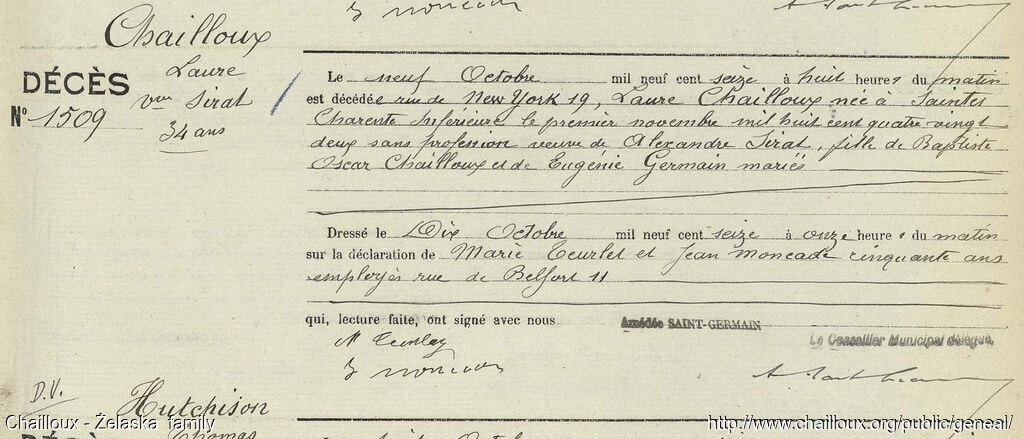 Chailloux
DÉCÈS
Nº 1509
Laure
vve Sirat
34 ans
Le neuf Octobre mil neuf cent seize à huit heures du matin
est décédée rue de New York 19, Laure Chailloux née à Saintes
Charente Inférieure le premier novembre mil huit cent quatre vingt
deux sans profession veuve de Alexandre Sirat, fille de Baptiste
Oscar Chailloux et de Eugénie Germain mariés
Dressé le Dix Octobre mil neuf cent seize à onze heures du matin
sur la déclaration de Marie et Jean Moncade cinquante ans
employés rue de Belfort 11
qui, lecture faite, ont signé avec nous Amédée SAINT-GERMAIN
Le Conseiller Municipal délégué,
D.V.
Hutchison
Thomas
DÉCÈS
Chailloux - Żelaska family
http://www.chailloux.org/public/geneal/